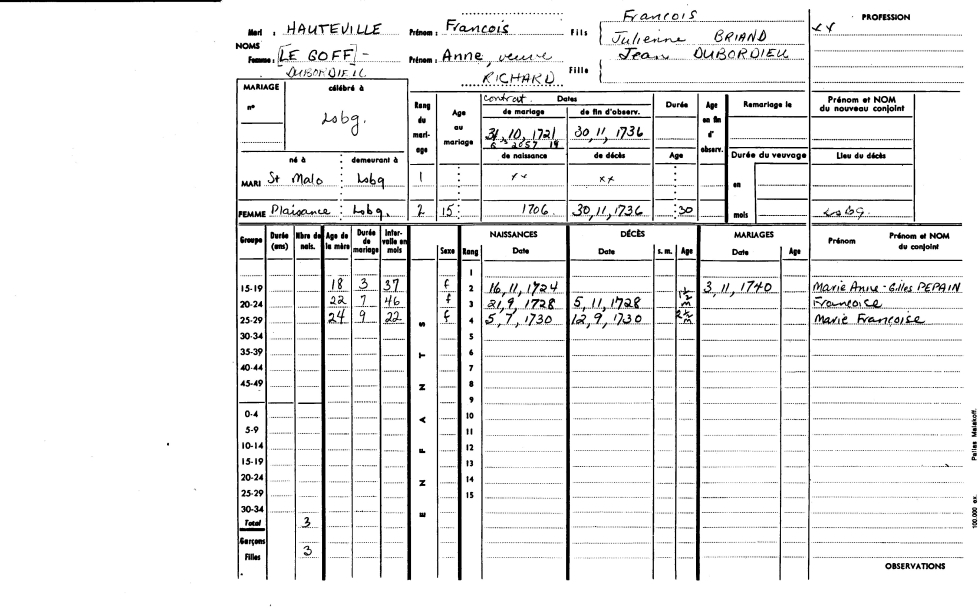 François
Mari : HAUTEVILLE Prénom : François Fils Julienne BRIAND
NOMS Femme : [LE GOFF] - Prénom : Anne, veuve Fille Jean DUBORDIEU
DUBORDIEU RICHARD
PROFESSION
xx
MARIAGE célébré à
n° Lobg.
Rang du mariage
Age au mariage
contrat. Dates
de mariage de fin d'observ.
31, 10, 1721 30, 11, 1736
de naissance de décès
Durée
Age
Age en fin d'observ.
Remariage le
Durée du veuvage
en
mois
Prénom et NOM du nouveau conjoint
Lieu du décès
né à demeurant à
MARI St Malo Lobg 1 xx xx
FEMME Plaisance Lobg. 2 15 1706. 30, 11, 1736 30 Lobg.
Groupe Durée (ans) Nbre de nais. Age de la mère Durée de mariage Intervalle en mois Sexe Rang NAISSANCES Date DÉCÈS Date s. m. Age MARIAGES Date Age Prénom Prénom et NOM du conjoint
1
15-19 18 3 37 f 2 16, 11, 1724 3, 11, 1740 Marie Anne - Gilles PEPAIN
20-24 22 7 46 f 3 21, 9, 1728 5, 11, 1728 1½ m Francoise
25-29 24 9 22 f 4 5, 7, 1730 12, 9, 1730 2½ m Marie Françoise
30-34 5
35-39 6
40-44 7
45-49 8
9
0-4 10
5-9 11
10-14 12
15-19 13
20-24 14
25-29 15
30-34
Total 3
Garçons
Filles 3
E N F A N T S
OBSERVATIONS
100.000 ex. Pallas Malakoff.